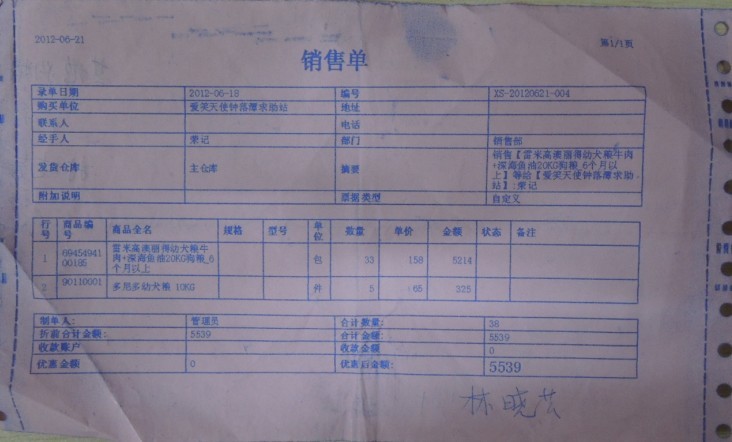 2012-06-21 第1/1页
销售单
录单日期 2012-06-18 编号 XS-20120621-004
购买单位 爱笑天使钟落潭求助站 地址
联系人 电话
经手人 荣记 部门 销售部
发货仓库 主仓库 摘要 销售【雷米高澳丽得幼犬粮牛肉
+深海鱼油20KG狗粮_6个月以
上】等给【爱笑天使钟落潭求助
站】:荣记
附加说明 票据类型 自定义
行号 商品编号 商品全名 规格 型号 单位 数量 单价 金额 状态 备注
1 6945494100185 雷米高澳丽得幼犬粮牛肉+深海鱼油20KG狗粮_6个月以上 包 33 158 5214
2 90110001 多思多幼犬粮 10KG 件 5 65 325
制单人: 管理员 合计数量: 38
折前合计金额: 5539 合计金额: 5539
收款账户 收款金额 0
优惠金额 0 优惠后金额: 5539
林晓芸